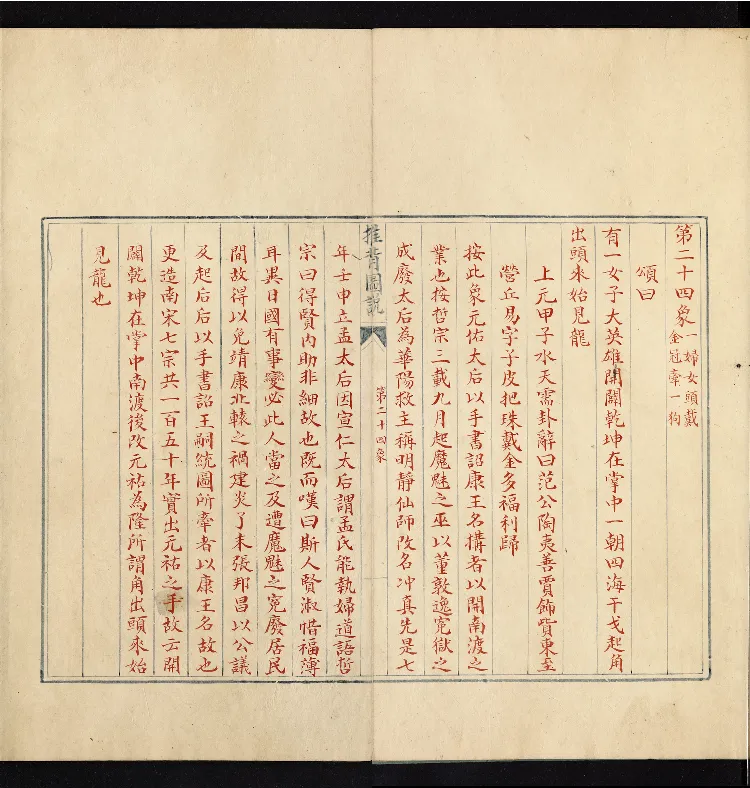 第二十四象一婦女頭戴
金冠牽一狗
頌曰
有一女子大英雄開闢乾坤在掌中一朝四海干戈起角
出頭來始見龍
上元甲子水天需卦辭曰范公陶夷善賈飾貲東至
營丘易字子皮把珠戴金多福利歸
按此象元佑太后以手書詔康王名構者以開南渡之
業也按哲宗三載九月起魔魅之巫以董敦逸寃獄之
成廢太后為華陽教主稱明靜仙師改名冲真先是七
推背圖說
第二十四象
年壬申立孟太后因宣仁太后謂孟氏能執婦道語哲
宗曰得賢內助非細故也既而嘆曰斯人賢淑惜福薄
耳異日國有事變必此人當之及遭魔魅之寃廢居民
間故得以免靖康北轅之禍建炎丁未張邦昌以公議
及起后后以手書詔王嗣統圖所牽者以康王名故也
更造南宋七宗共一百五十年實出元祐之手故云開
闢乾坤在掌中南渡後改元祐為隆所謂角出頭來始
見龍也